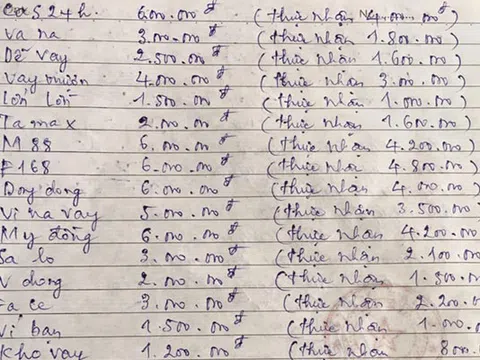 24h. 6.000.000đ (thực nhận 4.000.000đ)
Va na 3.000.000đ (thực nhận 1.800.000đ
Dễ vay 2.500.000đ (thực nhận 1.600.000đ
Vay muốn 4.000.000đ (thực nhận 3.000.000đ
Lớn Lớn 1.500.000đ (thực nhận 1.000.000đ
Tamax 2.000.000đ (thực nhận 1.600.000đ
M88 6.000.000đ (thực nhận 4.200.000đ
F168 6.000.000đ (thực nhận 4.800.000đ
Dong dong 6.000.000đ (thực nhận 4.000.000đ
Vi na vay 5.000.000đ (thực nhận 3.500.000đ
My đồng 6.000.000đ (thực nhận 4.200.000
Sa lo 3.000.000đ (thực nhận 2.100.000
V dong 2.000.000đ (thực nhận 1.300.000
3.000.000đ (thực nhận 2.200.00
Ví bạn 1.500.000đ (thực nhận 1.000.00
Kho vay 1.200.000đ (thực nhận 800.00